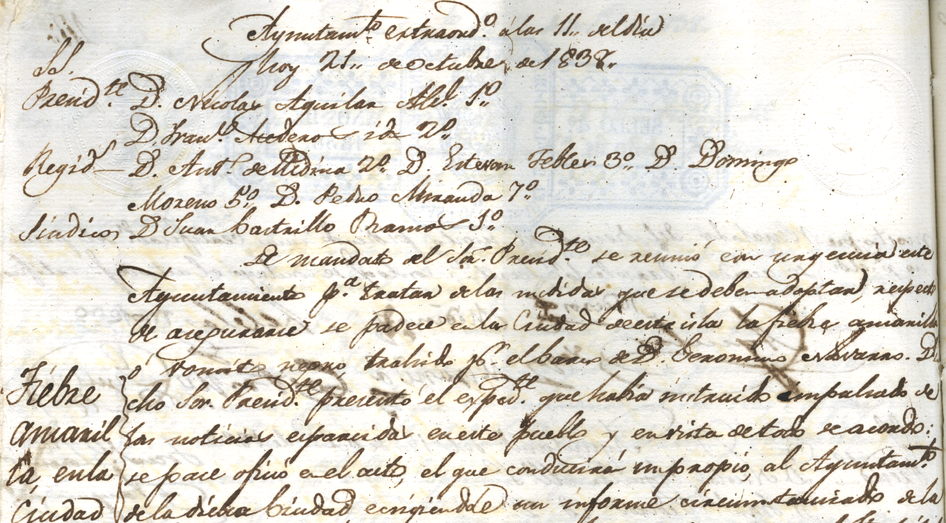 Ayuntamto. extraordo. á las 11,, del dia
hoy 21,, de octubre de 1838,,
SS.
Presidte. D. Nicolas Aguilar Alce. 1º
D. Franco. id. 2º
Regids. D. Anto. de Medina 2º D. Estevan Febles 3º D. Domingo
Moreno 5º D. Pedro Miranda 7º
Sindicos D. Juan Castrillo Ramos 1º
De mandato del Sor. Presidte. se reunió con urgencia este
Ayuntamiento pa. tratar de las medidas que se deben adoptar, respecto
de asegurarse se padece en la Ciudad de esta isla la fiebre amarilla
ó vomito negro trahido pr. el barco de D. Geronimo Navarro. D
cho Sor. Presidte. presentó el expedte. que habia instruido impulsado de
las noticias esparcidas en este pueblo y en vista de todo se acordó:
se pase oficio en el acto, el que conducirá un propio, al Ayuntamto.
de la dicha Ciudad exigiendole un informe circunstanciado de la
Fiebre
amaril
la en la
Ciudad